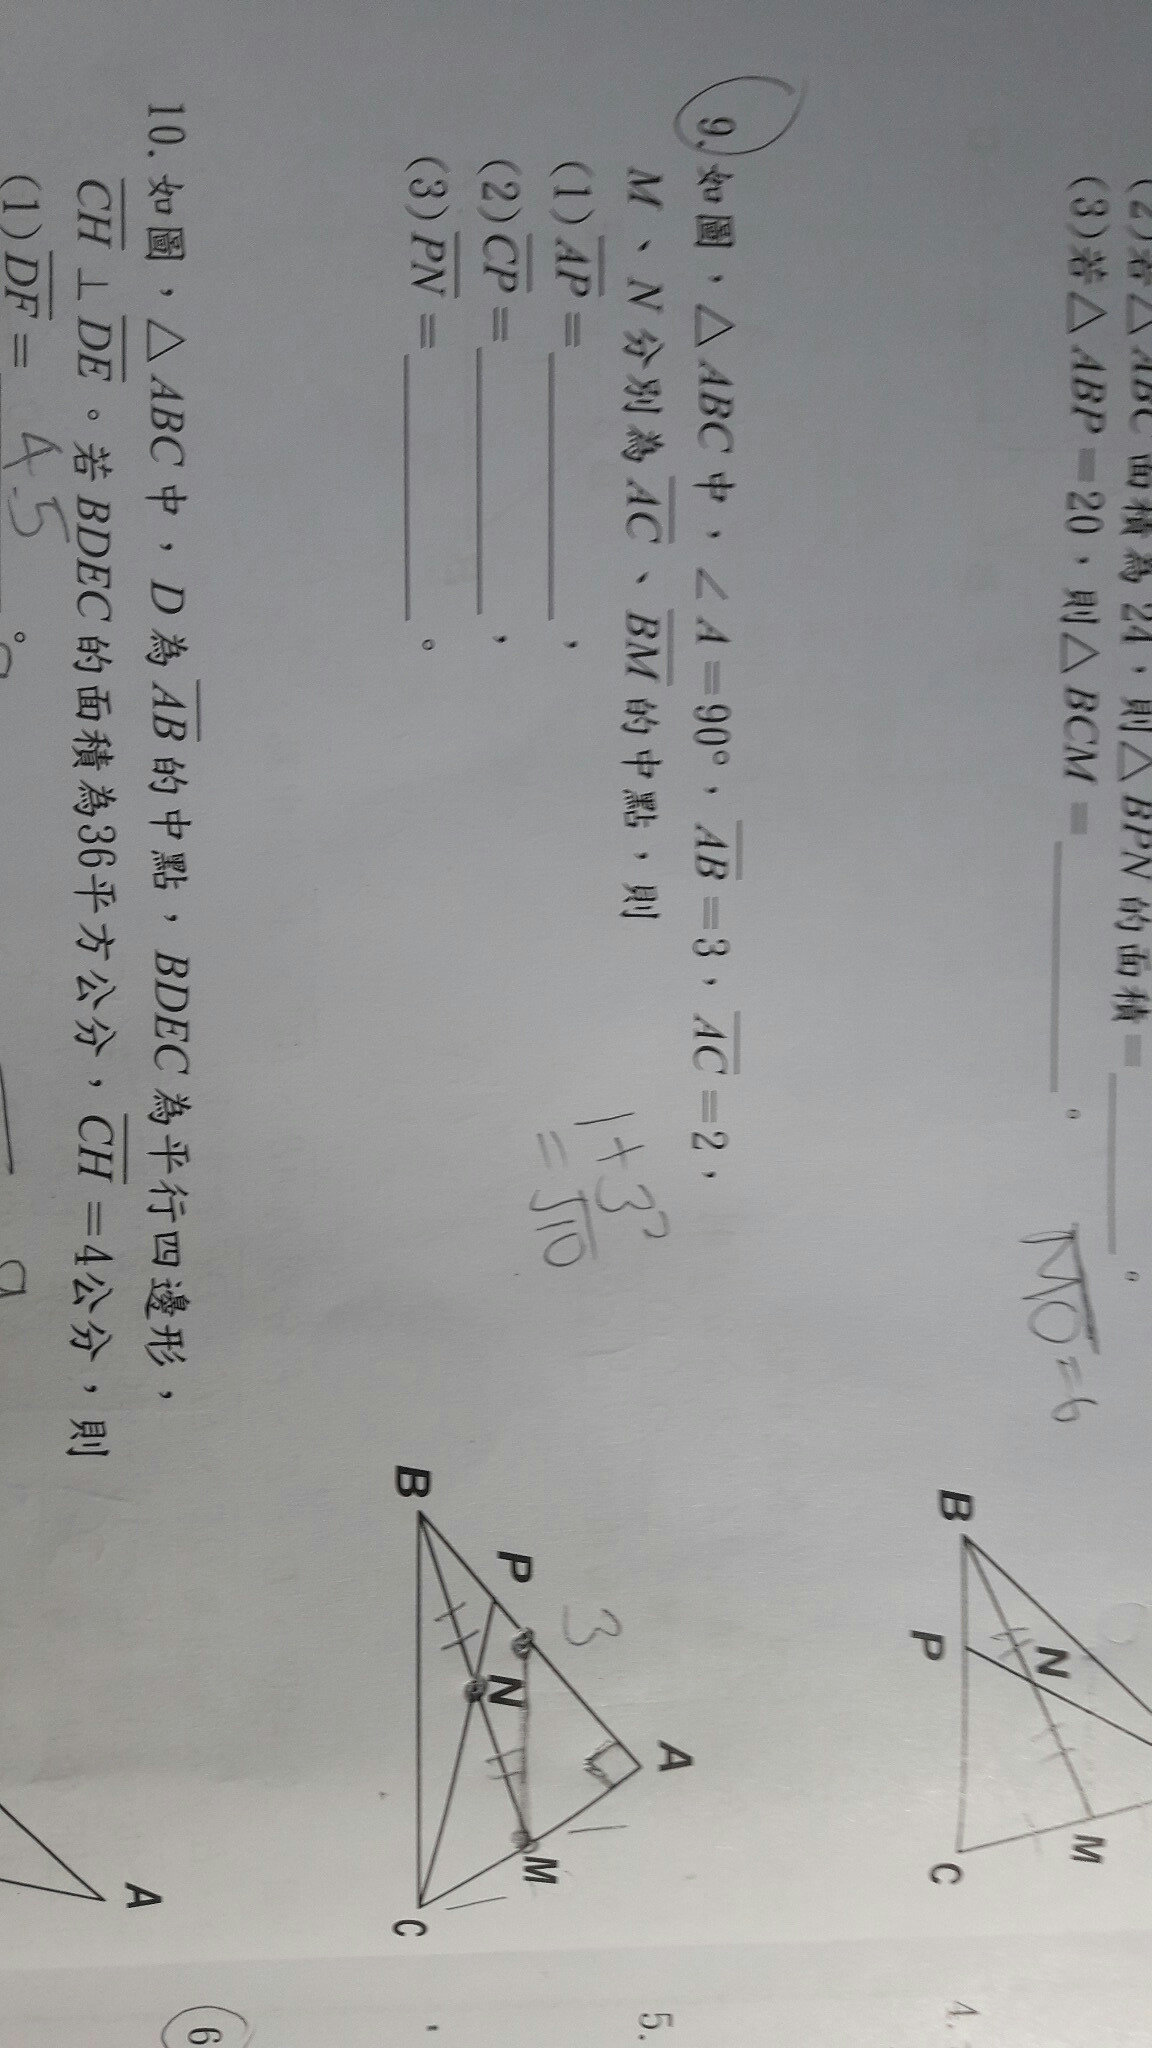 (2)若△ABC面積為24，則△BPN的面積=______。
(3)若△ABP=20，則△BCM=______。
=6
B
N
P
M
C
9. 如圖，△ABC中，∠A=90°，AB=3，AC=2，
M、N分別為AC、BM的中點，則
(1)AP=______，
(2)CP=______，
(3)PN=______。
1+3²
=√10
A
B
P
N
M
C
3
1
1
10. 如圖，△ABC中，D為AB的中點，BDEC為平行四邊形，
CH⊥DE。若BDEC的面積為36平方公分，CH=4公分，則
(1)DF=______。
4.5
A
4.
5.
6